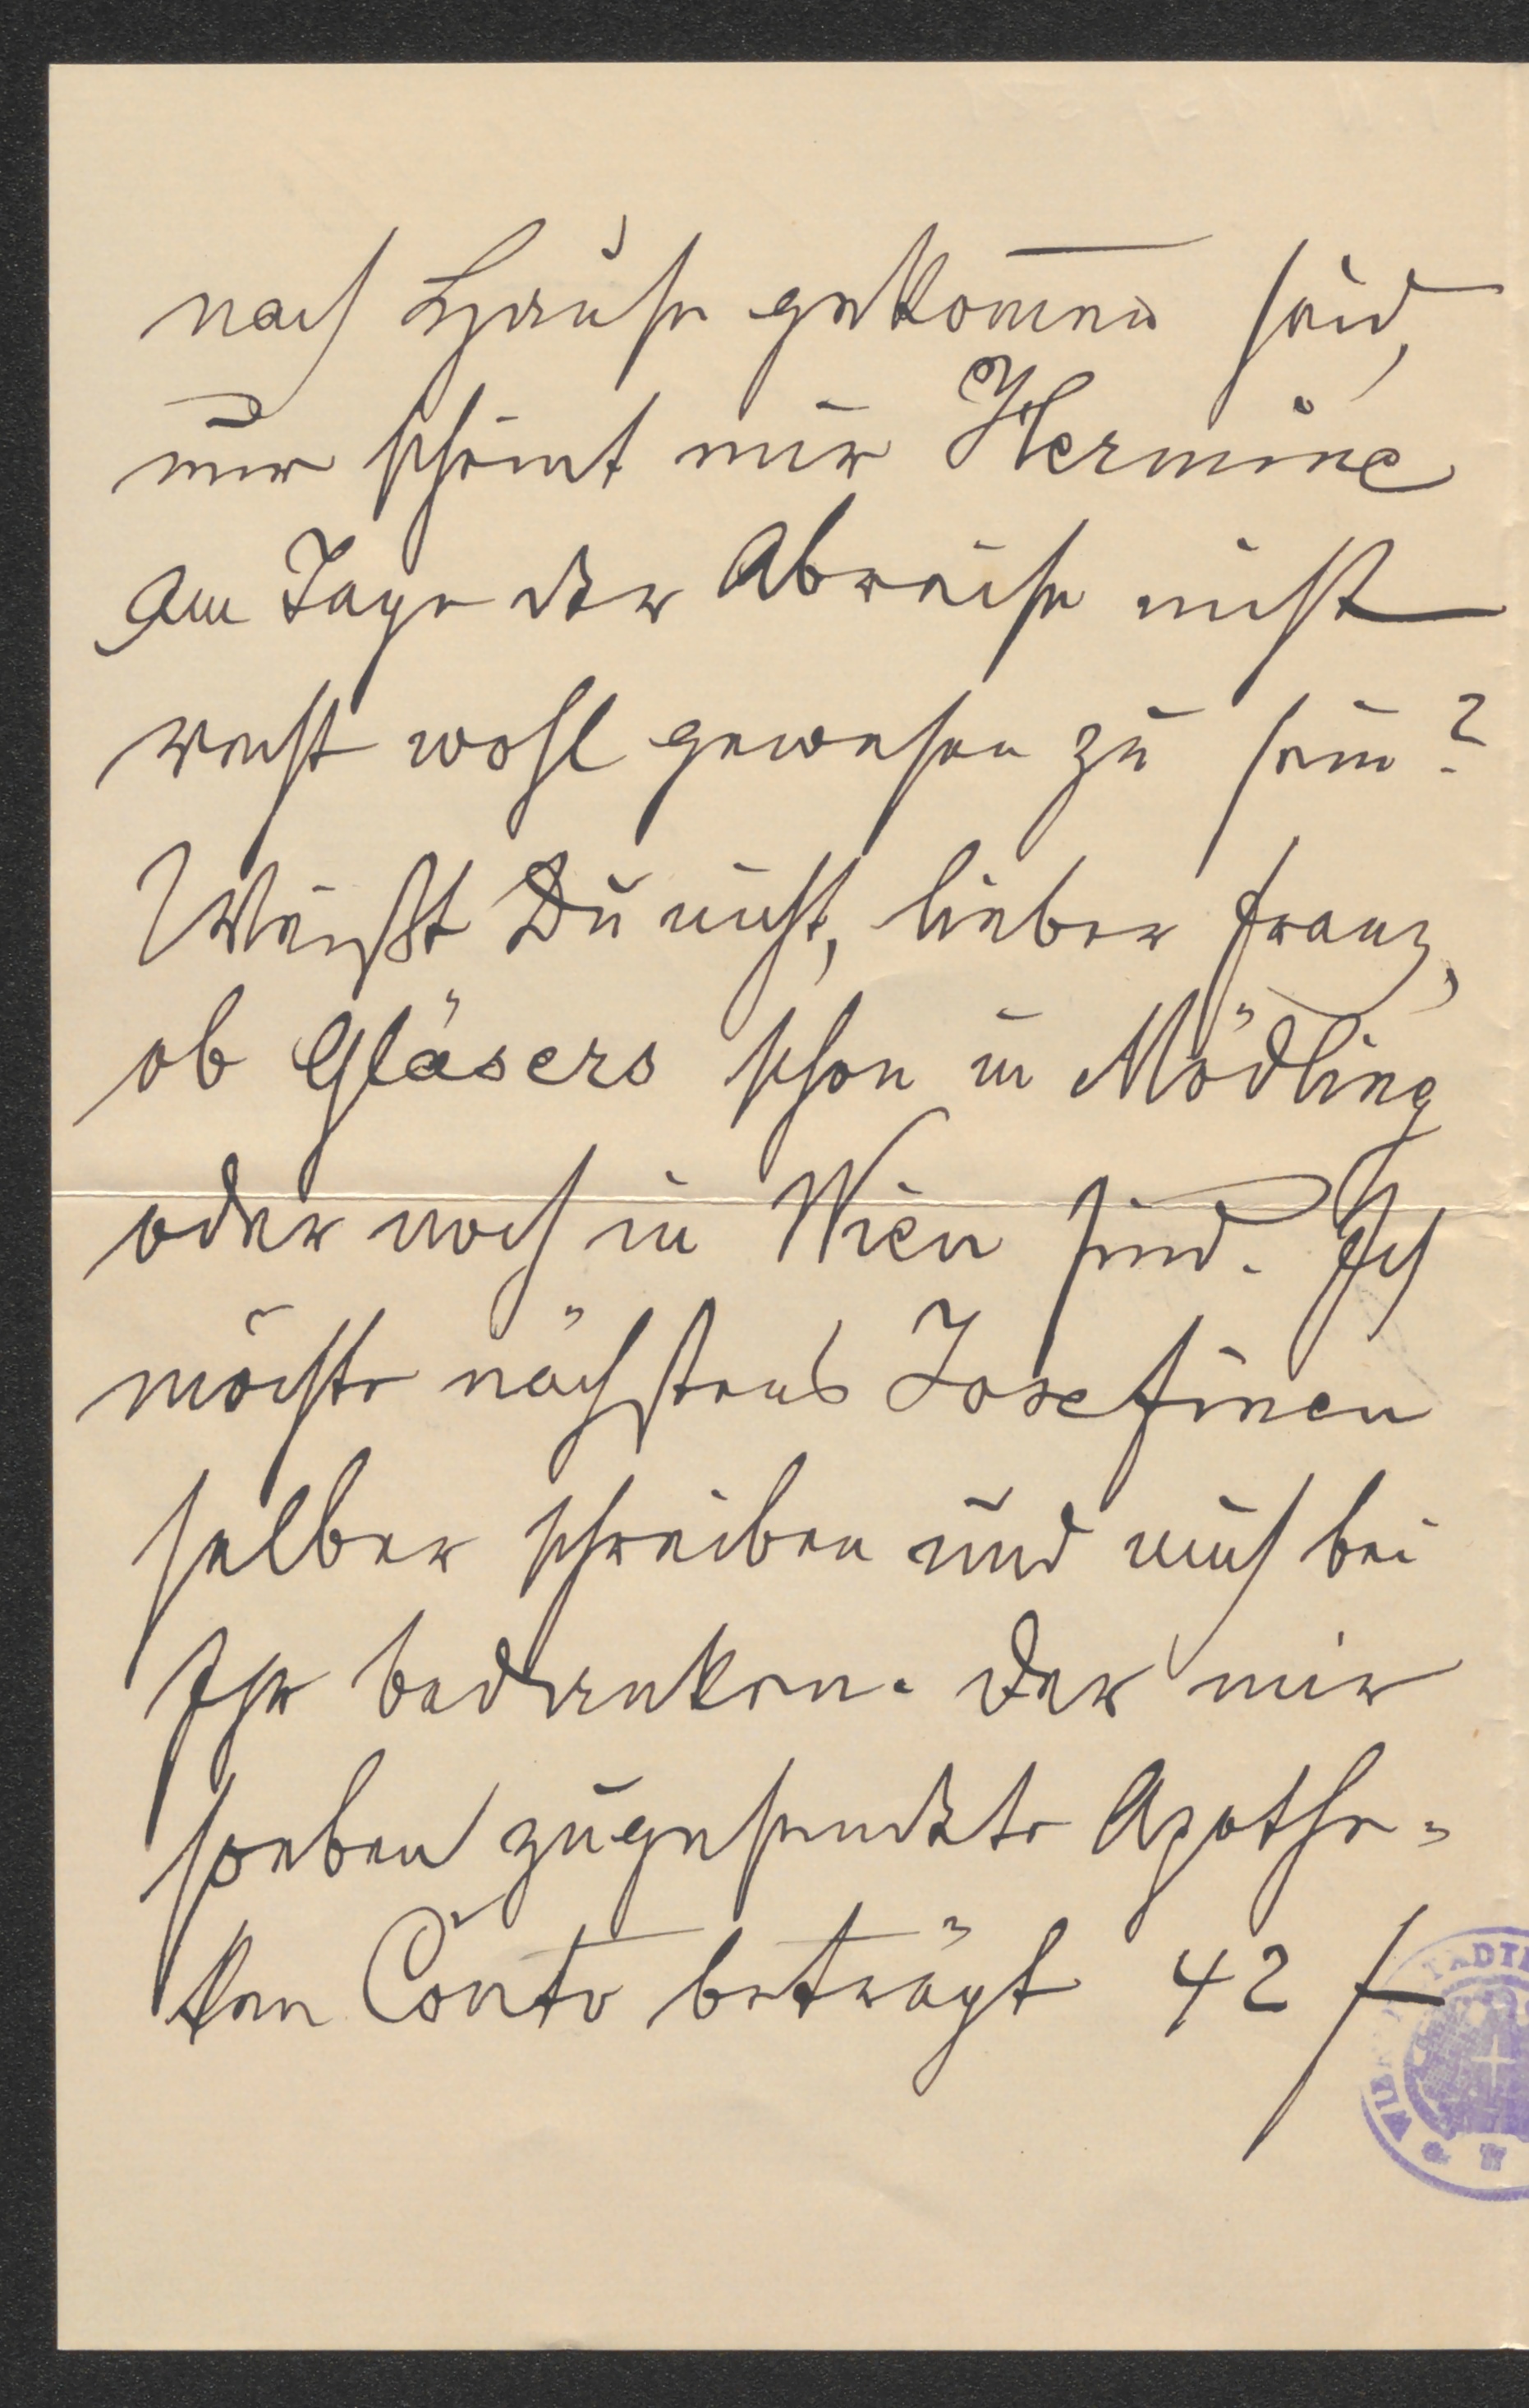 nach Hause gekom̅en seid,
nur scheint mir Hermine
am Tage der Abreise nicht
recht wohl gewesen zu sein?
Weißt Du nicht, lieber Franz,
ob Gläsers schon in Mödling
oder noch in Wien sind. Ich
möchte nächstens Josefinen
selber schreiben und mich bei
Ihr bedanken. Der mir
soeben zugeschickte Apothe=
ken Conto beträgt 42 f